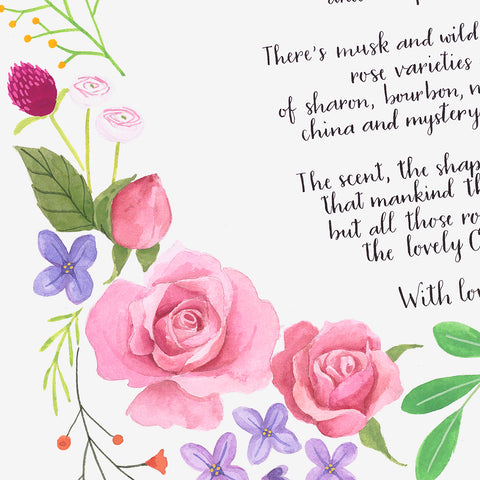 There's musk and wild
rose varieties
of sharon, bourbon,
china and mystery
The scent, the
that mankind
but all those
the lovely
With